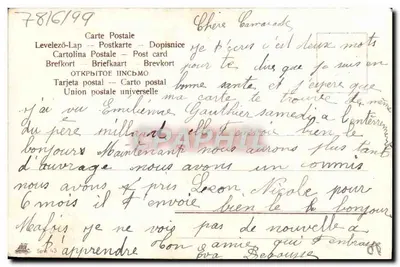 78/6/99
Chère Camarade
Carte Postale
Levelező-Lap — Postkarte — Dopisnice
Cartolina Postale — Post card
Brefkort — Briefkaart — Brevkort
ОТКРЫТОЕ ПИСЬМО
Tarjeta postal — Carto postal
Union postale universelle
je t'écris c'est deux mots
pour te dire que je suis en
bonne santé et j'espère que
ma carte te trouvera de même
j'ai vu Emilienne Gauthier samedi à l'enterre
du père elle t'envoie bien le
bonjours Maintenant nous aurons plus tant
d'ouvrage nous avons un commis
nous avons pris Léon Nicole pour
6 mois il t'envoie bien le bonjour
Mafois je ne vois pas de nouvelle a
t'apprendre Ton amie qui t'embrasse
Eva